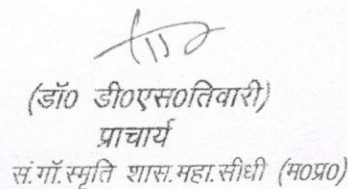 (डॉ0 डी0एस0तिवारी)
प्राचार्य
सं.गाँ.स्मृति शास.महा.सीधी (म0प्र0)